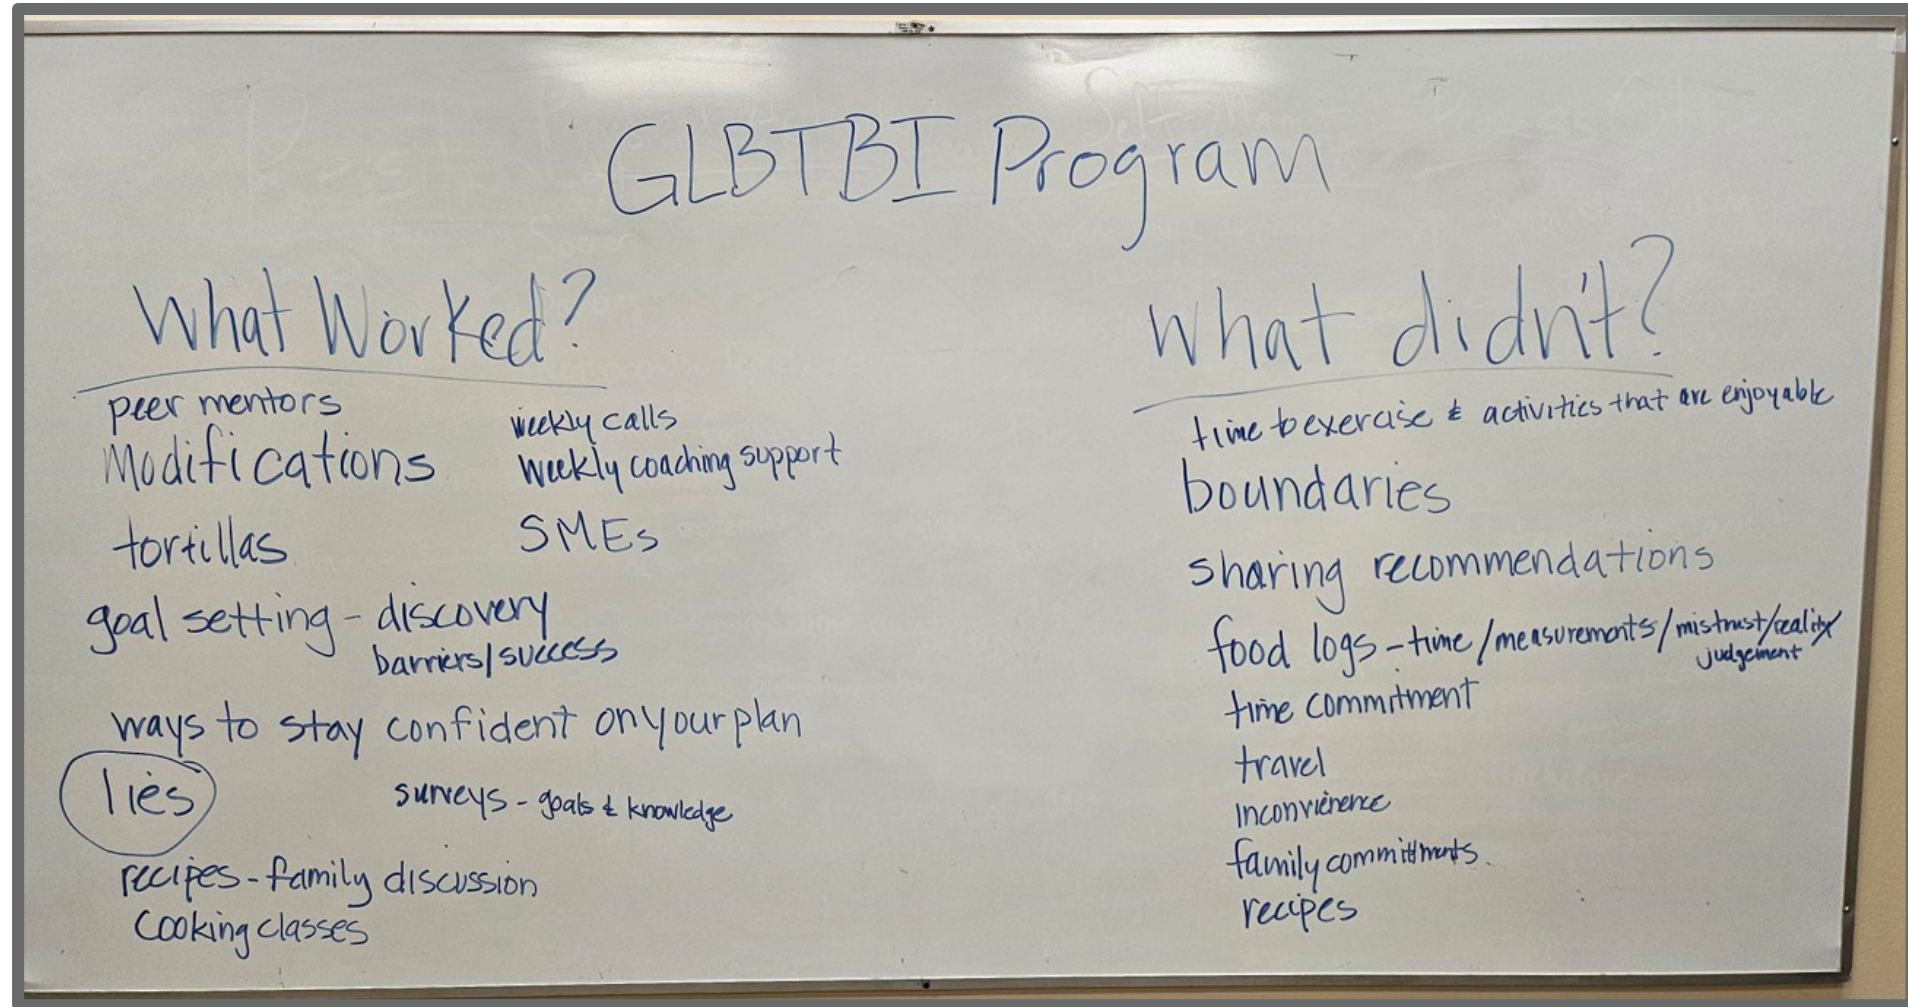 GLBTBI Program
What Worked?
peer mentors
Modifications
tortillas
weekly calls
weekly coaching support
SMEs
goal setting - discovery
barriers/success
ways to stay confident on your plan
lies
surveys - goals & knowledge
recipes - family discussion
Cooking classes
What didn't?
time to exercise & activities that are enjoyable
boundaries
sharing recommendations
food logs - time/measurements/mistrust/reality/
judgement
time commitment
travel
inconvienence
family committments.
recipes